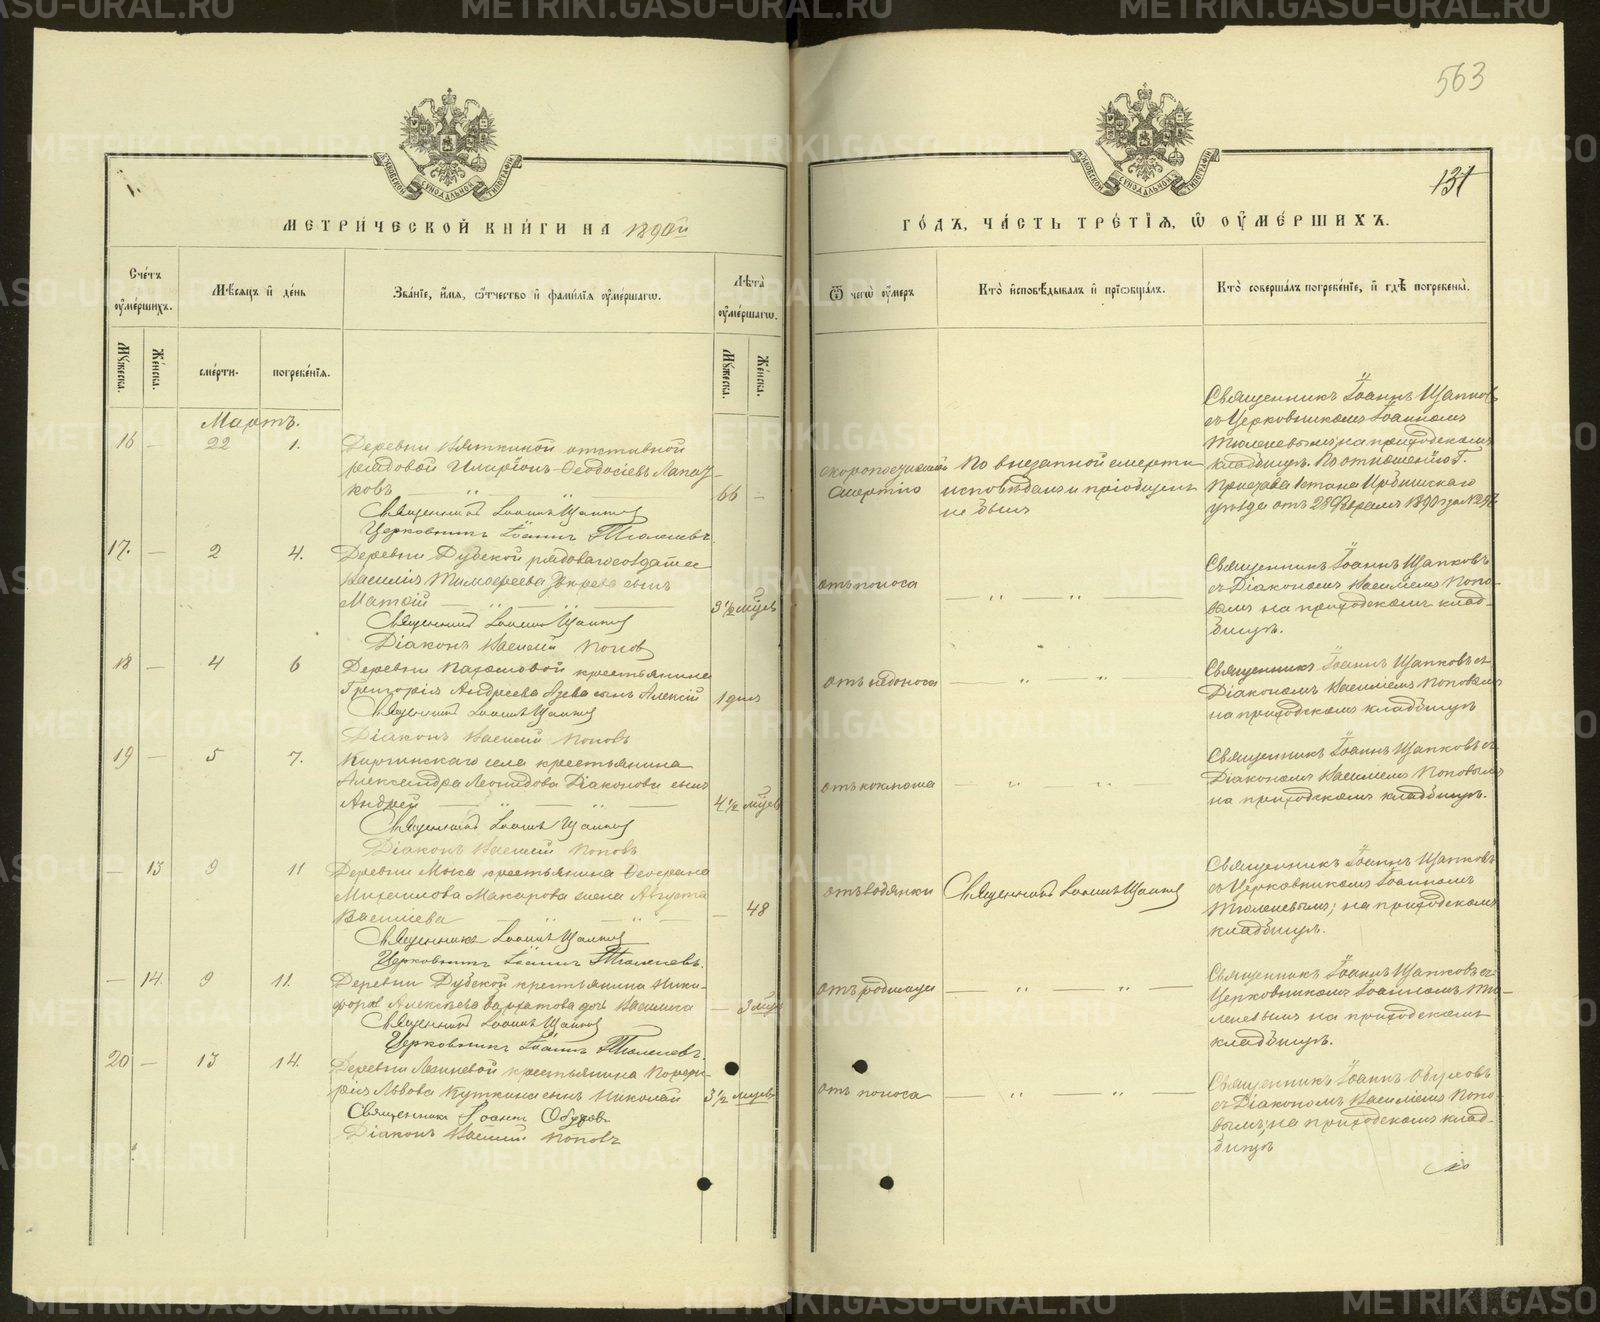 METRIKI.GASO-URAL.RU
563
131
МЕТРИ́ЧЕСКОЙ КНИ́ГИ НА 1890й
ГО́ДЪ, ЧА́СТЬ ТРЕ́ТІЯ, Ѡ ОУ҆МЕ́РШИХЪ.
Сче́тъ оу҆ме́ршихъ.
Мꙋ́жеска.
Же́нска.
Мѣ́сяцъ и҆ де́нь
сме́рти.
погребе́нїя.
Зва́нїе, и҆́мя, ѻ҆́тчество и҆ фами́лїя оу҆ме́ршагѡ.
Лѣ́та оу҆ме́ршагѡ.
Мꙋ́жеска.
Же́нска.
Ѿ чегѡ̀ оу҆́меръ
Кто̀ и҆сповѣ́дывалъ и҆ прїѡбща́лъ.
Кто̀ соверша́лъ погребе́нїе, и҆ гдѣ̀ погребены̀.
Мартъ.
16 — 22 1.
Деревни Вяткиной отставной
рядовой Иларіонъ Ѳеодосіевъ Лапаз-
ковъ — 66 —
Священникъ Іоаннъ Щапковъ
Церковникъ Іоаннъ Тюленевъ.
скоропостижной
смертію
По внезапной смерти
исповѣданъ и пріобщенъ
не былъ
Священникъ Іоаннъ Щапковъ
съ Церковникомъ Іоанномъ
Тюленевымъ, на приходскомъ
кладбищѣ. По отношенію Г.
Пристава 1 стана Ирбитскаго
уѣзда отъ 28 Февраля 1890 г за №
17. — 2 4.
Деревни Дубской рядоваго солдата
Василія Тимоѳеева сынъ
— 3 ½ мцев
Священникъ Іоаннъ Щапковъ
Діаконъ Василій Поповъ
отъ поноса
— " — " —
Священникъ Іоаннъ Щапковъ
съ Діакономъ Василіемъ Попо-
вымъ на приходскомъ клад-
бищѣ.
18 — 4 6
Деревни крестьянина
Григорія Андреева сынъ Алексій 1 дня
Священникъ Іоаннъ Щапковъ
Діаконъ Василій Поповъ
отъ недоноса
— " — " —
Священникъ Іоаннъ Щапковъ съ
Діакономъ Василіемъ Поповымъ
на приходскомъ кладбищѣ
19 — 5 7.
Киргинскаго села крестьянина
Александра Леонидова Діаконова сынъ
Андрей — " — " — 4 ½ мцев
Священникъ Іоаннъ Щапковъ
Діаконъ Василій Поповъ
отъ коклюша
— " — " —
Священникъ Іоаннъ Щапковъ съ
Діакономъ Василіемъ Поповымъ
на приходскомъ кладбищѣ.
— 13 9 11
Деревни Мыса крестьянина
Макарова жена Августа
Васильева — " — — 48
Священникъ Іоаннъ Щапковъ
Церковникъ Іоаннъ Тюленевъ.
отъ водянки
Священникъ Іоаннъ Щапковъ
Священникъ Іоаннъ Щапковъ
съ Церковникомъ Іоанномъ
Тюленевымъ; на приходскомъ
кладбищѣ.
— 14. 9 11.
Деревни Дубской крестьянина Ники-
фора Алексѣева Бархатова дочь Василиса — 3 мцев
Священникъ Іоаннъ Щапковъ
Церковникъ Іоаннъ Тюленевъ.
отъ родимца
— " — " —
Священникъ Іоаннъ Щапковъ съ
Церковникомъ Іоанномъ Тю-
леневымъ на приходскомъ
кладбищѣ.
20 — 13 14.
Деревни крестьянина Порфи-
рія Львова Куткина сынъ Николай 3 ½ мцев
Священникъ Іоаннъ Обуховъ
Діаконъ Василій Поповъ
отъ поноса
— " — " —
Священникъ Іоаннъ Обуховъ
съ Діакономъ Василіемъ Попо-
вымъ, на приходскомъ клад-
бищѣ